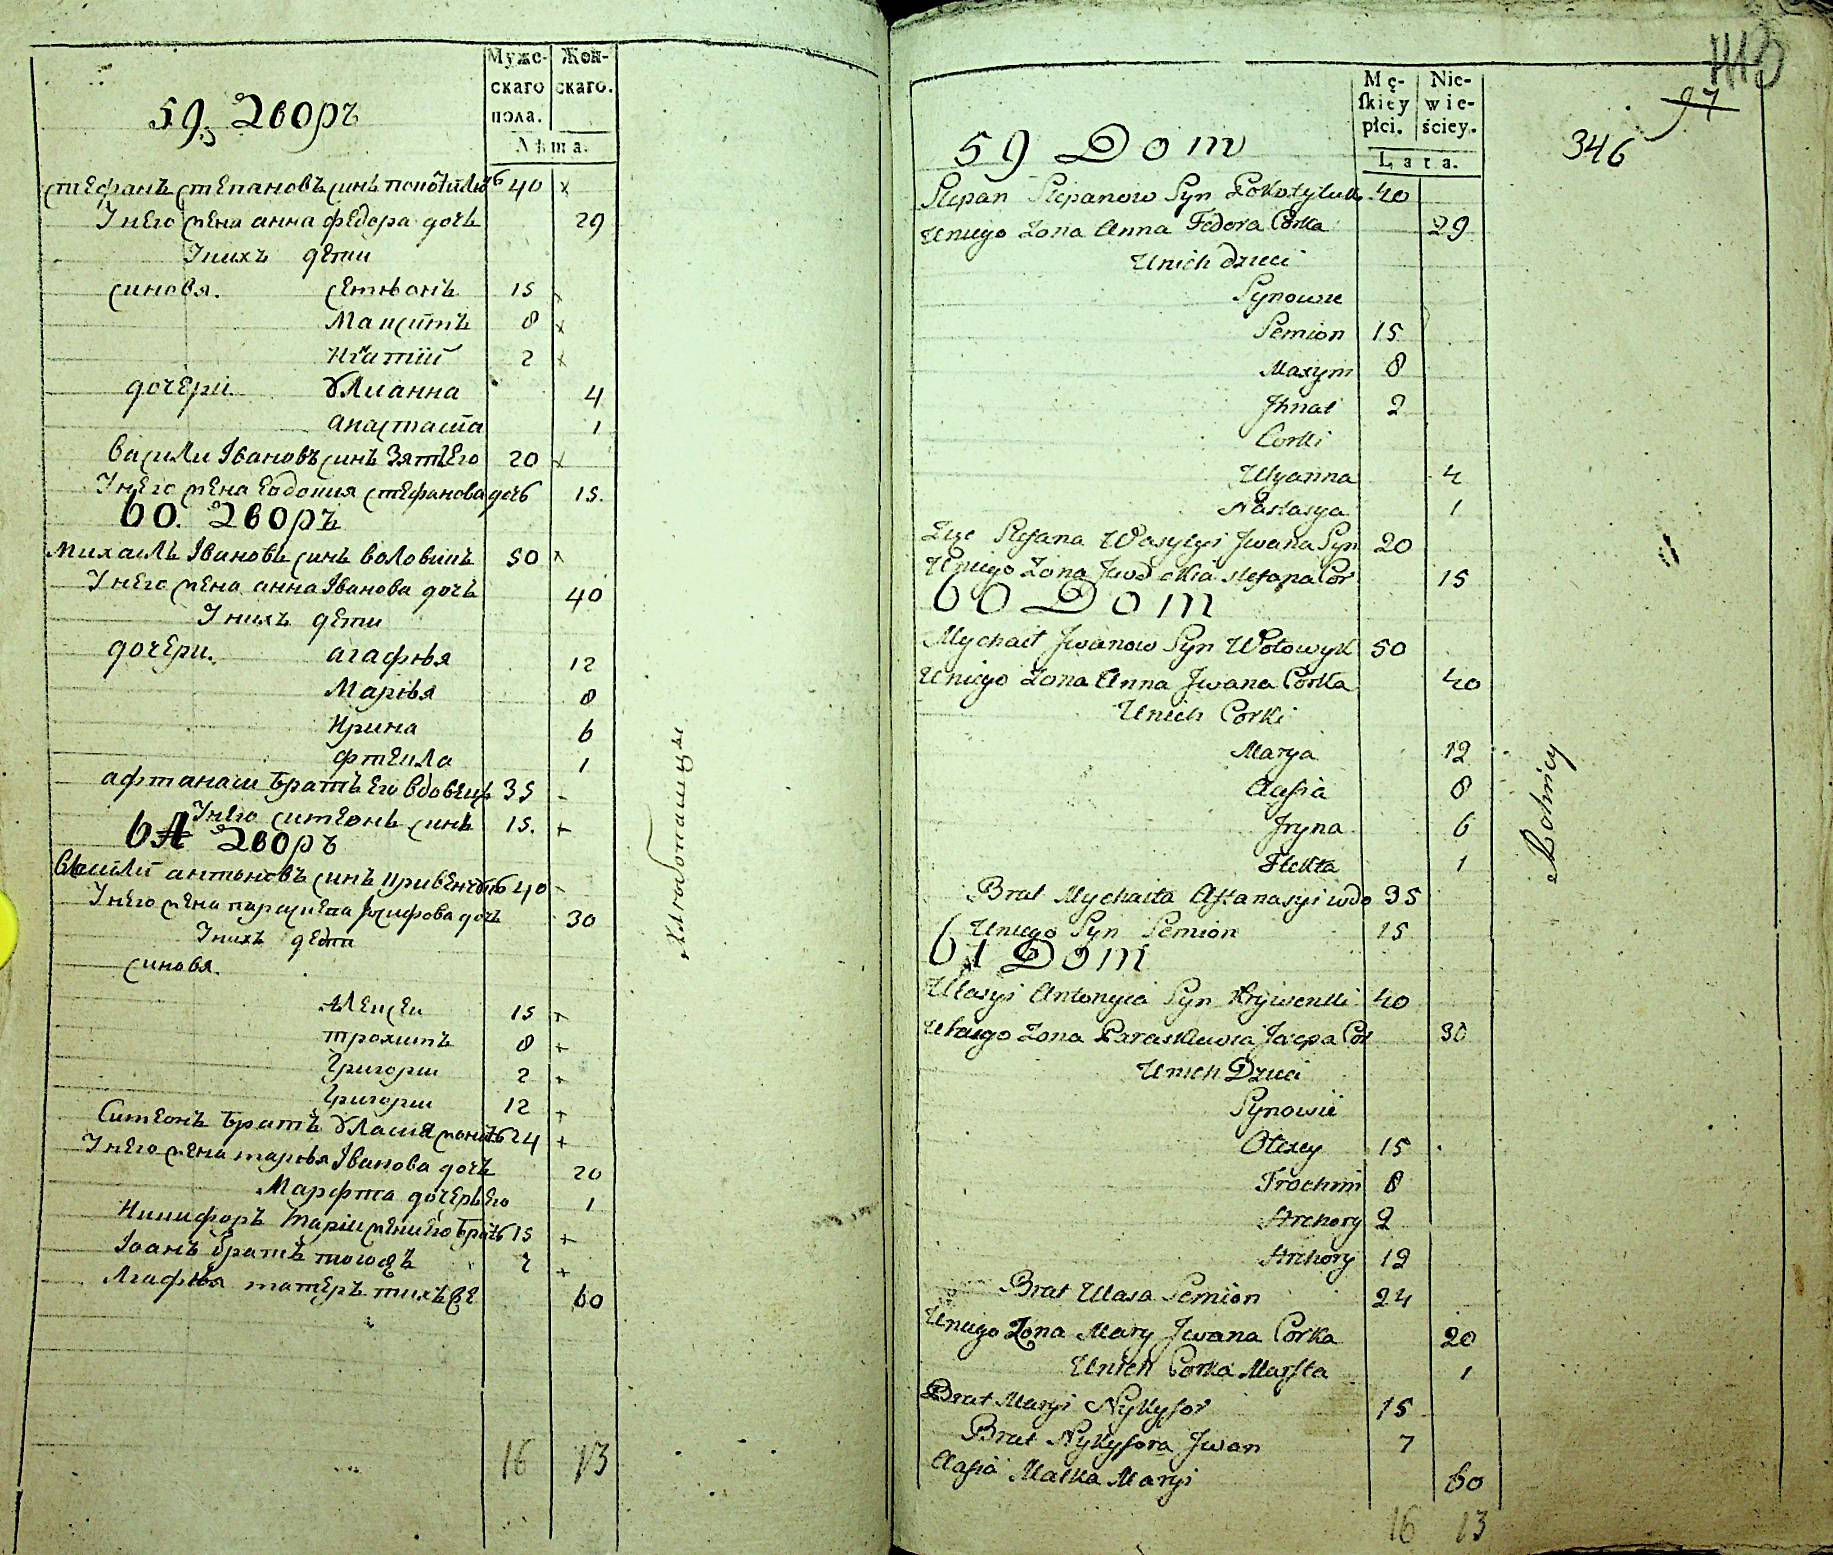 Муже-
скаго
пола.
Жен-
скаго.
Лѣта.
59 Дворъ
Стефанъ Степановъ синъ 40
У него жена анна федора дочъ 29
У нихъ дети
синовя. Семионъ 15
Максимъ 8
Игнатий 2
дочери Улианна 4
анастасиа 1
Васили Івановъ синъ зять его 20
У него жена евдокия стефанова дочь 15.
60. Дворъ
Михаилъ Івановъ синъ воловикъ 50
У него жена анна Іванова дочъ 40
У нихъ дети
дочери. агафия 12
Мария 8
Ирина 6
фтекла 1
афтанаси братъ его вдовецъ 35
У него симеонъ синъ 15.
61 Дворъ
антоновъ синъ 40
У него жена дочъ 30
У нихъ дети
синовя.
Алексеи 15
трохимъ 8
Григории 2
Григории 12
Симеонъ братъ 24
У него жена мария Іванова дочъ 20
Марфта дочерь его 1
Никифоръ марии жени его братъ 15
Іоанъ братъ 7
Агафия матеръ 60
16 13
Хлѣбопашцы
Mę-
skiey
płci.
Nie-
wie-
ściey.
Lata.
97
346
59 Dom
Stepan Stepanow Syn Pokotyluk 40
Uniego Zona Anna Fedora Corka 29
Unich dzieci
Synowie
Semion 15
Maxym 8
Jhnat 2
Corki
Ulyanna 4
Nastasya 1
Zięc Stefana Wasylyi Jwana Syn 20
Uniego Zona Jwdokia Stefana Cor 15
60 Dom
Mychaił Jwanow Syn Wołowyk 50
Uniego Zona Anna Jwana Corka 40
Unich Corki
Marya 12
Aafia 8
Jryna 6
Ftekla 1
Brat Mychaiła Aftanasyi wdo 35
Uniego Syn Semion 15
61 Dom
Ułasyi Antonyia Syn Krywenki 40
Uniego Zona Paraskiewia Cor 30
Unich Dzieci
Synowie
Olexey 15
Trochim 8
Hrehory 2
Hrehory 12
Brat Ułasa Semion 24
Uniego Zona Mary Jwana Corka 20
Unich Corka Marfta 1
Brat Maryi Nykyfor 15
Brat Nykyfora Jwan 7
Aafia Matka Maryi 60
16 13
Rolnicy